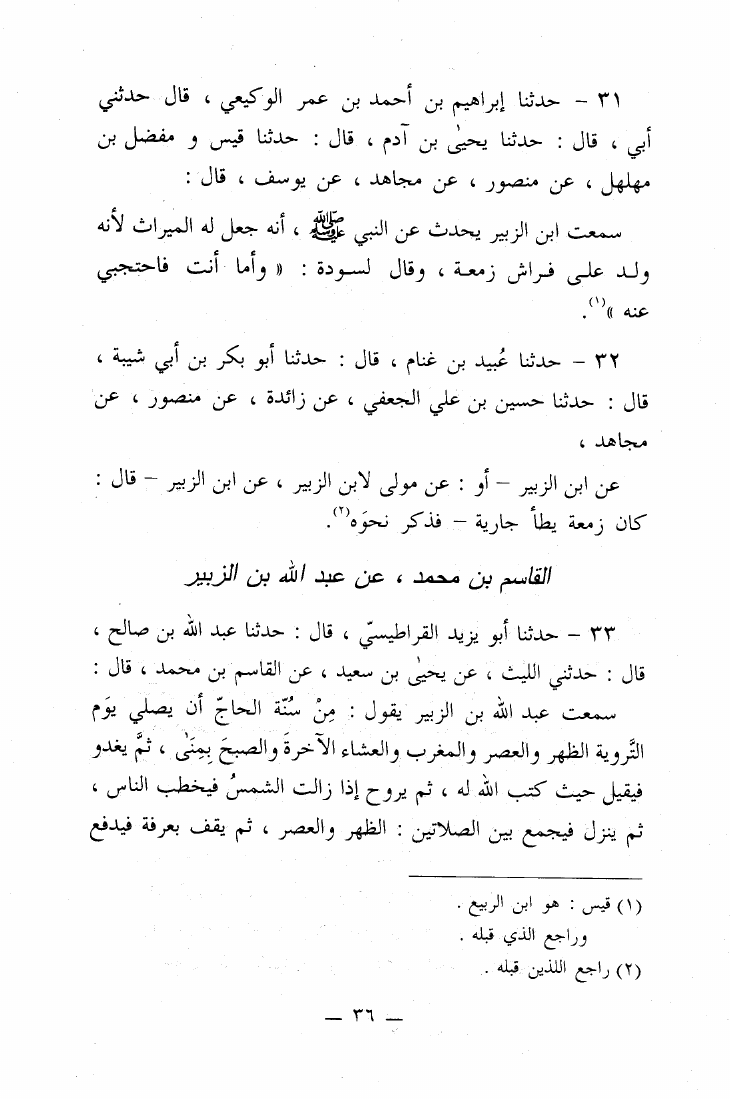 ٣١ - حدثنا إبراهيم بن أحمد بن عمر الوكيعي ، قال حدثني
أبي ، قال : حدثنا يحيىٰ بن آدم ، قال : حدثنا قيس و مفضل بن
مهلهل ، عن منصور ، عن مجاهد ، عن يوسف ، قال :
سمعت ابن الزبير يحدث عن النبي ﷺ ، أنه جعل له الميراث لأنه
ولد على فراش زمعة ، وقال لسودة : « وأما أنت فاحتجبي
عنه »(١).
٣٢ - حدثنا عُبيد بن غنام ، قال : حدثنا أبو بكر بن أبي شيبة ،
قال : حدثنا حسين بن علي الجعفي ، عن زائدة ، عن منصور ، عن
مجاهد ،
عن ابن الزبير – أو : عن مولى لابن الزبير ، عن ابن الزبير – قال :
كان زمعة يطأ جارية – فذكر نحوَه(٢).
القاسم بن محمد ، عن عبد الله بن الزبير
٣٣ - حدثنا أبو يزيد القراطيسيّ ، قال : حدثنا عبد الله بن صالح ،
قال : حدثني الليث ، عن يحيىٰ بن سعيد ، عن القاسم بن محمد ، قال :
سمعت عبد الله بن الزبير يقول : مِنْ سُنّة الحاجّ أن يصلي يوَم
التَّروية الظهر والعصر والمغرب والعشاء الآخرةَ والصبحَ بِمِنَىٰ ، ثمَّ يغدو
فيقيل حيث كتب الله له ، ثم يروح إذا زالت الشمسُ فيخطب الناس ،
ثم ينزل فيجمع بين الصلاتين : الظهر والعصر ، ثم يقف بعرفة فيدفع
(١) قيس : هو ابن الربيع .
وراجع الذي قبله .
(٢) راجع اللذين قبله .
— ٣٦ —